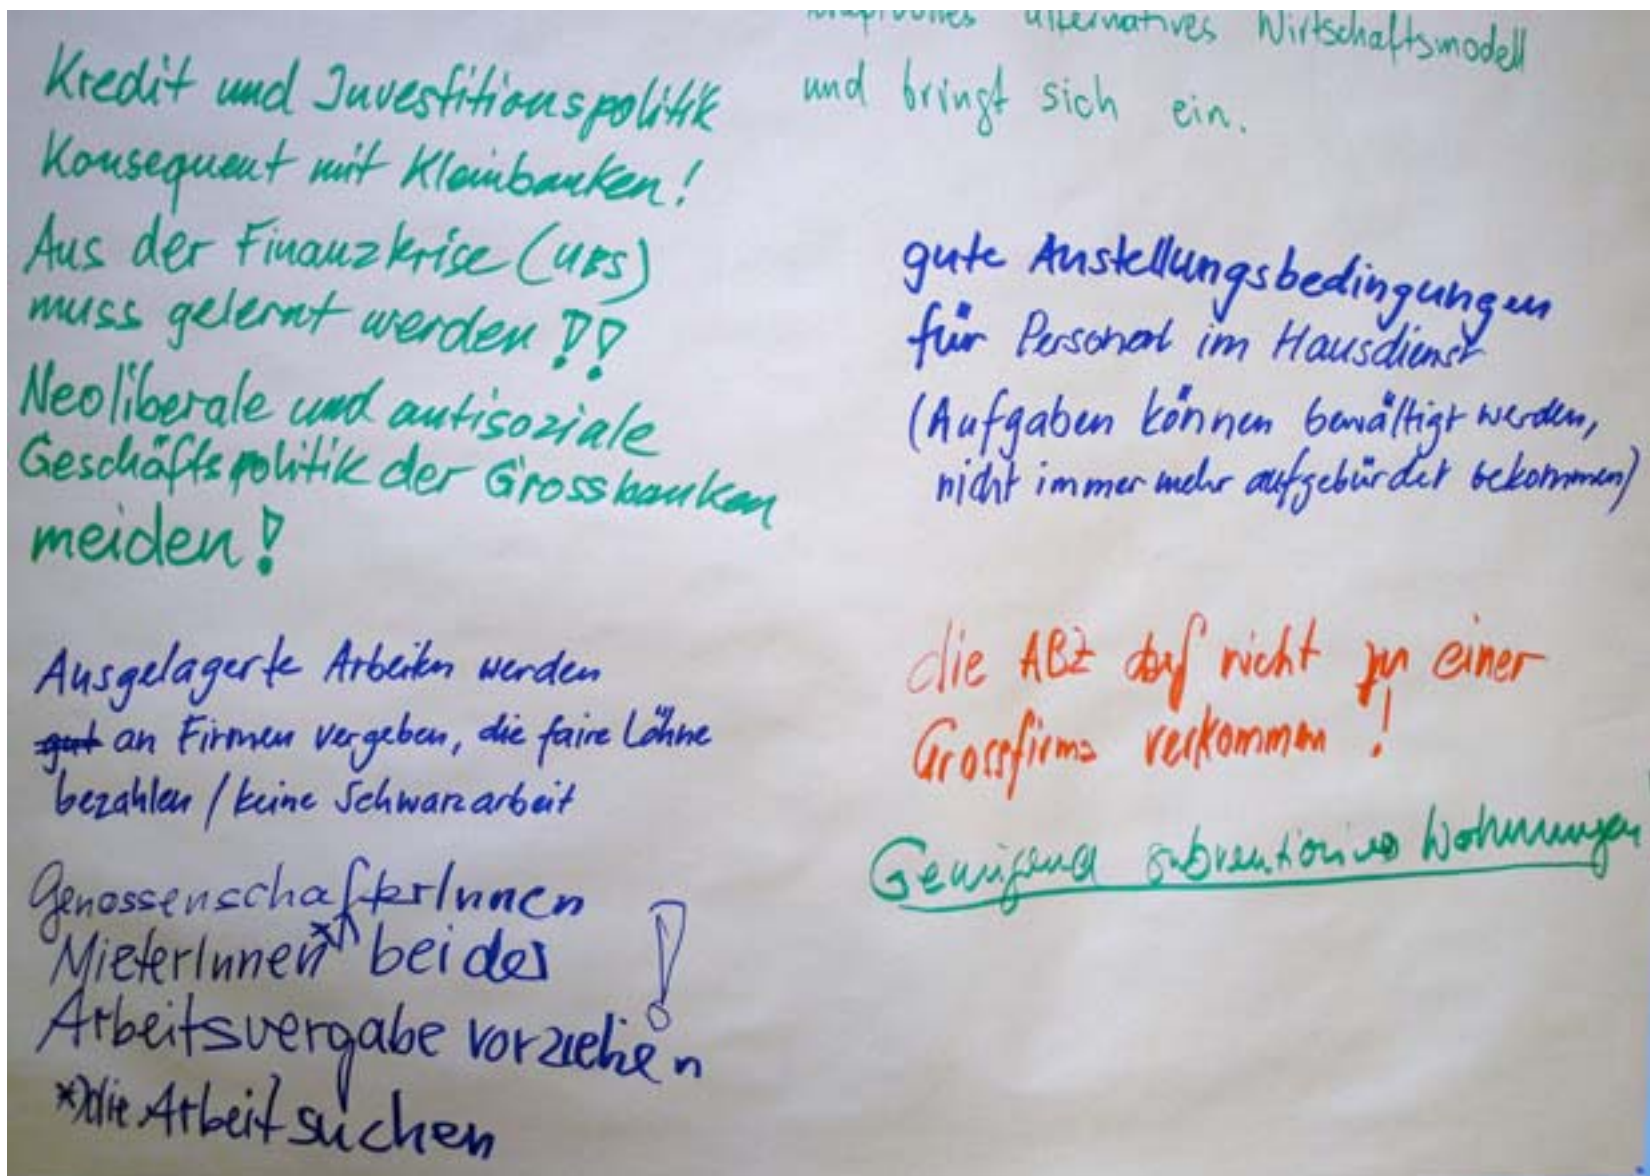 Kredit und Investitionspolitik
Konsequent mit Kleinbanken!
Aus der Finanzkrise (UBS)
muss gelernt werden!!
Neoliberale und antisoziale
Geschäftspolitik der Grossbanken
meiden!
Ausgelagerte Arbeiten werden
gut an Firmen vergeben, die faire Löhne
bezahlen / keine Schwarzarbeit
GenossenschafterInnen
MieterInnen*) bei der
Arbeitsvergabe vorziehen!
*) die Arbeit suchen
alternatives Wirtschaftsmodell
und bringt sich ein.
gute Anstellungsbedingungen
für Personal im Hausdienst
(Aufgaben können bewältigt werden,
nicht immer mehr aufgebürdet bekommen)
die ABZ darf nicht zu einer
Grossfirma verkommen!
Genügend Wohnungen